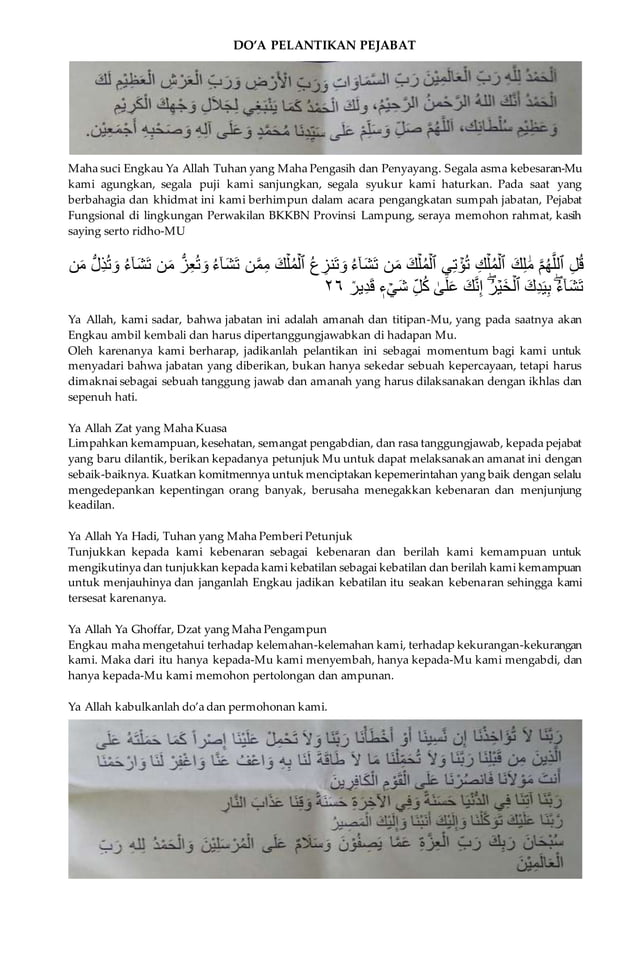 DO'A PELANTIKAN PEJABAT
اَلْحَمْدُ لِلَّهِ رَبِّ الْعَالَمِيْنَ رَبِّ السَّمَاوَاتِ وَرَبِّ الْأَرْضِ وَرَبِّ الْعَرْشِ الْعَظِيْمِ لَكَ
الْحَمْدُ أَنَّكَ اللهُ الرَّحْمنُ الرَّحِيْمُ، ولَكَ الْحَمْدُ كَمَا يَنْبَغِي لِجَلَالِ وَجْهِكَ الْكَرِيْمِ
وَعَظِيْمِ سُلْطَانِكَ، اَللَّهُمَّ صَلِّ وَسَلِّمْ عَلَى سَيِّدِنَا مُحَمَّدٍ وَعَلَى آلِهِ وَصَحْبِهِ أَجْمَعِيْن.
Maha suci Engkau Ya Allah Tuhan yang Maha Pengasih dan Penyayang. Segala asma kebesaran-Mu
kami agungkan, segala puji kami sanjungkan, segala syukur kami haturkan. Pada saat yang
berbahagia dan khidmat ini kami berhimpun dalam acara pengangkatan sumpah jabatan, Pejabat
Fungsional di lingkungan Perwakilan BKKBN Provinsi Lampung, seraya memohon rahmat, kasih
saying serto ridho-MU
قُلِ ٱللَّهُمَّ مَٰلِكَ ٱلۡمُلۡكِ تُؤۡتِي ٱلۡمُلۡكَ مَن تَشَآءُ وَتَنزِعُ ٱلۡمُلۡكَ مِمَّن تَشَآءُ وَتُعِزُّ مَن تَشَآءُ وَتُذِلُّ مَن
تَشَآءُۖ بِيَدِكَ ٱلۡخَيۡرُۖ إِنَّكَ عَلَىٰ كُلِّ شَيۡءٖ قَدِيرٞ ٢٦
Ya Allah, kami sadar, bahwa jabatan ini adalah amanah dan titipan-Mu, yang pada saatnya akan
Engkau ambil kembali dan harus dipertanggungjawabkan di hadapan Mu.
Oleh karenanya kami berharap, jadikanlah pelantikan ini sebagai momentum bagi kami untuk
menyadari bahwa jabatan yang diberikan, bukan hanya sekedar sebuah kepercayaan, tetapi harus
dimaknai sebagai sebuah tanggung jawab dan amanah yang harus dilaksanakan dengan ikhlas dan
sepenuh hati.
Ya Allah Zat yang Maha Kuasa
Limpahkan kemampuan, kesehatan, semangat pengabdian, dan rasa tanggungjawab, kepada pejabat
yang baru dilantik, berikan kepadanya petunjuk Mu untuk dapat melaksanakan amanat ini dengan
sebaik-baiknya. Kuatkan komitmennya untuk menciptakan kepemerintahan yang baik dengan selalu
mengedepankan kepentingan orang banyak, berusaha menegakkan kebenaran dan menjunjung
keadilan.
Ya Allah Ya Hadi, Tuhan yang Maha Pemberi Petunjuk
Tunjukkan kepada kami kebenaran sebagai kebenaran dan berilah kami kemampuan untuk
mengikutinya dan tunjukkan kepada kami kebatilan sebagai kebatilan dan berilah kami kemampuan
untuk menjauhinya dan janganlah Engkau jadikan kebatilan itu seakan kebenaran sehingga kami
tersesat karenanya.
Ya Allah Ya Ghoffar, Dzat yang Maha Pengampun
Engkau maha mengetahui terhadap kelemahan-kelemahan kami, terhadap kekurangan-kekurangan
kami. Maka dari itu hanya kepada-Mu kami menyembah, hanya kepada-Mu kami mengabdi, dan
hanya kepada-Mu kami memohon pertolongan dan ampunan.
Ya Allah kabulkanlah do'a dan permohonan kami.
رَبَّنَا لاَ تُؤَاخِذْنَا إِن نَّسِينَا أَوْ أَخْطَأْنَا رَبَّنَا وَلاَ تَحْمِلْ عَلَيْنَا إِصْراً كَمَا حَمَلْتَهُ عَلَى
الَّذِينَ مِن قَبْلِنَا رَبَّنَا وَلاَ تُحَمِّلْنَا مَا لاَ طَاقَةَ لَنَا بِهِ وَاعْفُ عَنَّا وَاغْفِرْ لَنَا وَارْحَمْنَا
أَنتَ مَوْلاَنَا فَانصُرْنَا عَلَى الْقَوْمِ الْكَافِرِينَ
رَبَّنَا آتِنَا فِي الدُّنْيَا حَسَنَةً وَفِي الآخِرَةِ حَسَنَةً وَقِنَا عَذَابَ النَّارِ
رَّبَّنَا عَلَيْكَ تَوَكَّلْنَا وَإِلَيْكَ أَنَبْنَا وَإِلَيْكَ الْمَصِيرُ
سُبْحَانَ رَبِكَ رَبِّ الْعِزَّةِ عَمَّا يَصِفُوْنَ وَسَلاَمٌ عَلَى الْمُرْسَلِيْنَ وَالْحَمْدُ لِلهِ رَبِّ
الْعَالَمِيْنَ